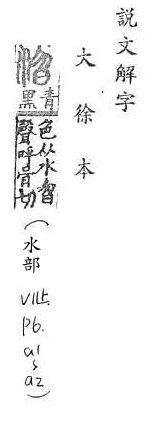 說文解字
大徐本
青黑
色从水曶
聲呼骨切
(水部 VII上. P6. a1~a2)